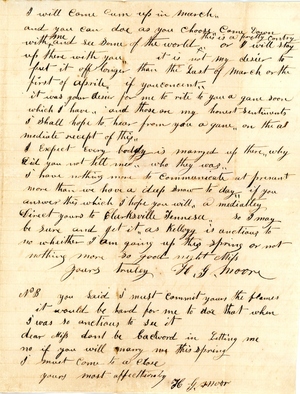 I will Come Cum up in march.
and you can doe as you choose Come Down
with me and see Some of the world this is a pretty Contry or I will stay
up there with you. it is not my desier to
put it off longer than the Last of march or the
first of aprile if you concent
it was your desier for me to rite to you a gane soon
which I have, and those are my honest Sentiments
I shall hope to hear from you a gane, on the at
mediate recept of this.
I Expect every boddy is marryed up there, why
Did you not tell me who they was.
I have nothing more to Communicate at present
more than we have a deep Snow to day, if you
answer this which I hope you will, a medialtey
Direct yours to Clarksville Tennessee. So I may
be sure and get it, as Kellogg is auctions to
no whether I am going up this Spring or not
nothing more So good night Miss
yours truley H. G. Moore
NB you said I must commit yours the flames
it would be hard for me to doe that when
I was so auctions to see it
dear Miss dont be backword in Letting me
no if you will marry me this Spring
I must come to a Close
yours most affecttionely
H G Moore